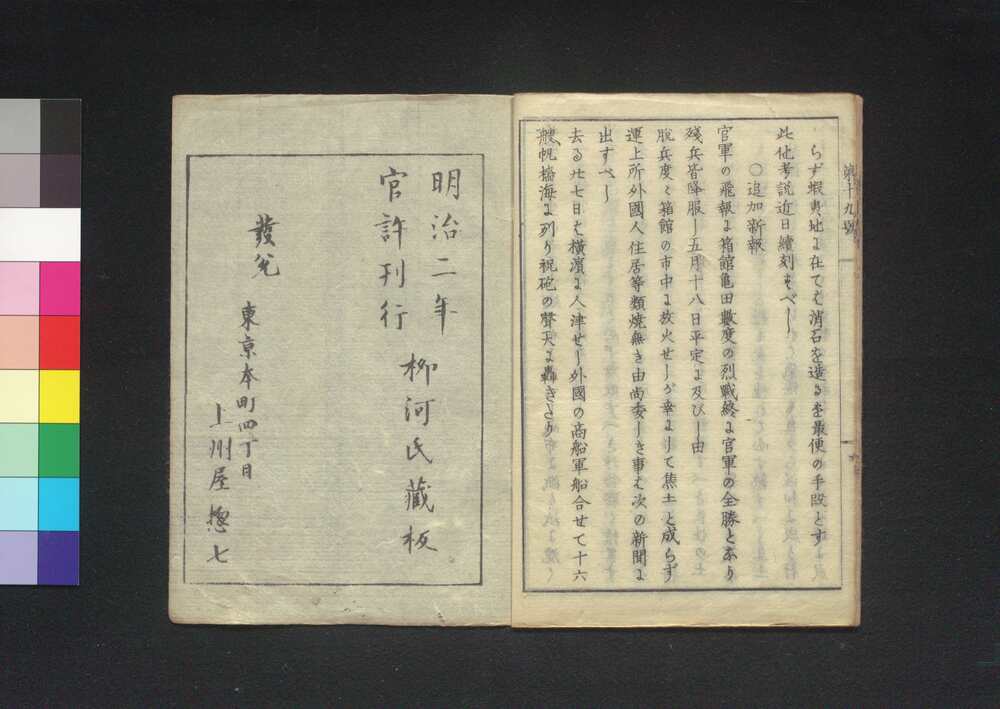 第十九號
らず蝦夷地に在ては消石を造るを最便の手段とす
此他考説近日續刻すべし
○追加新報
官軍の飛報に箱館亀田數度の烈戰終に官軍の全勝となり
殘兵皆降服し五月十八日平定に及びし由
脱兵度々箱館の市中に放火せしが幸にして焦土と成らず
運上所外國人住居等類焼無き由尚委しき事は次の新聞に
出すべし
去る廿七日は横濱に入津せし外國の商船軍船合せて十六
艘帆檣海に列り祝砲の聲天に轟きたり
明治二年
官許刊行
柳河氏藏板
發兌
東京本町四丁目
上州屋惣七